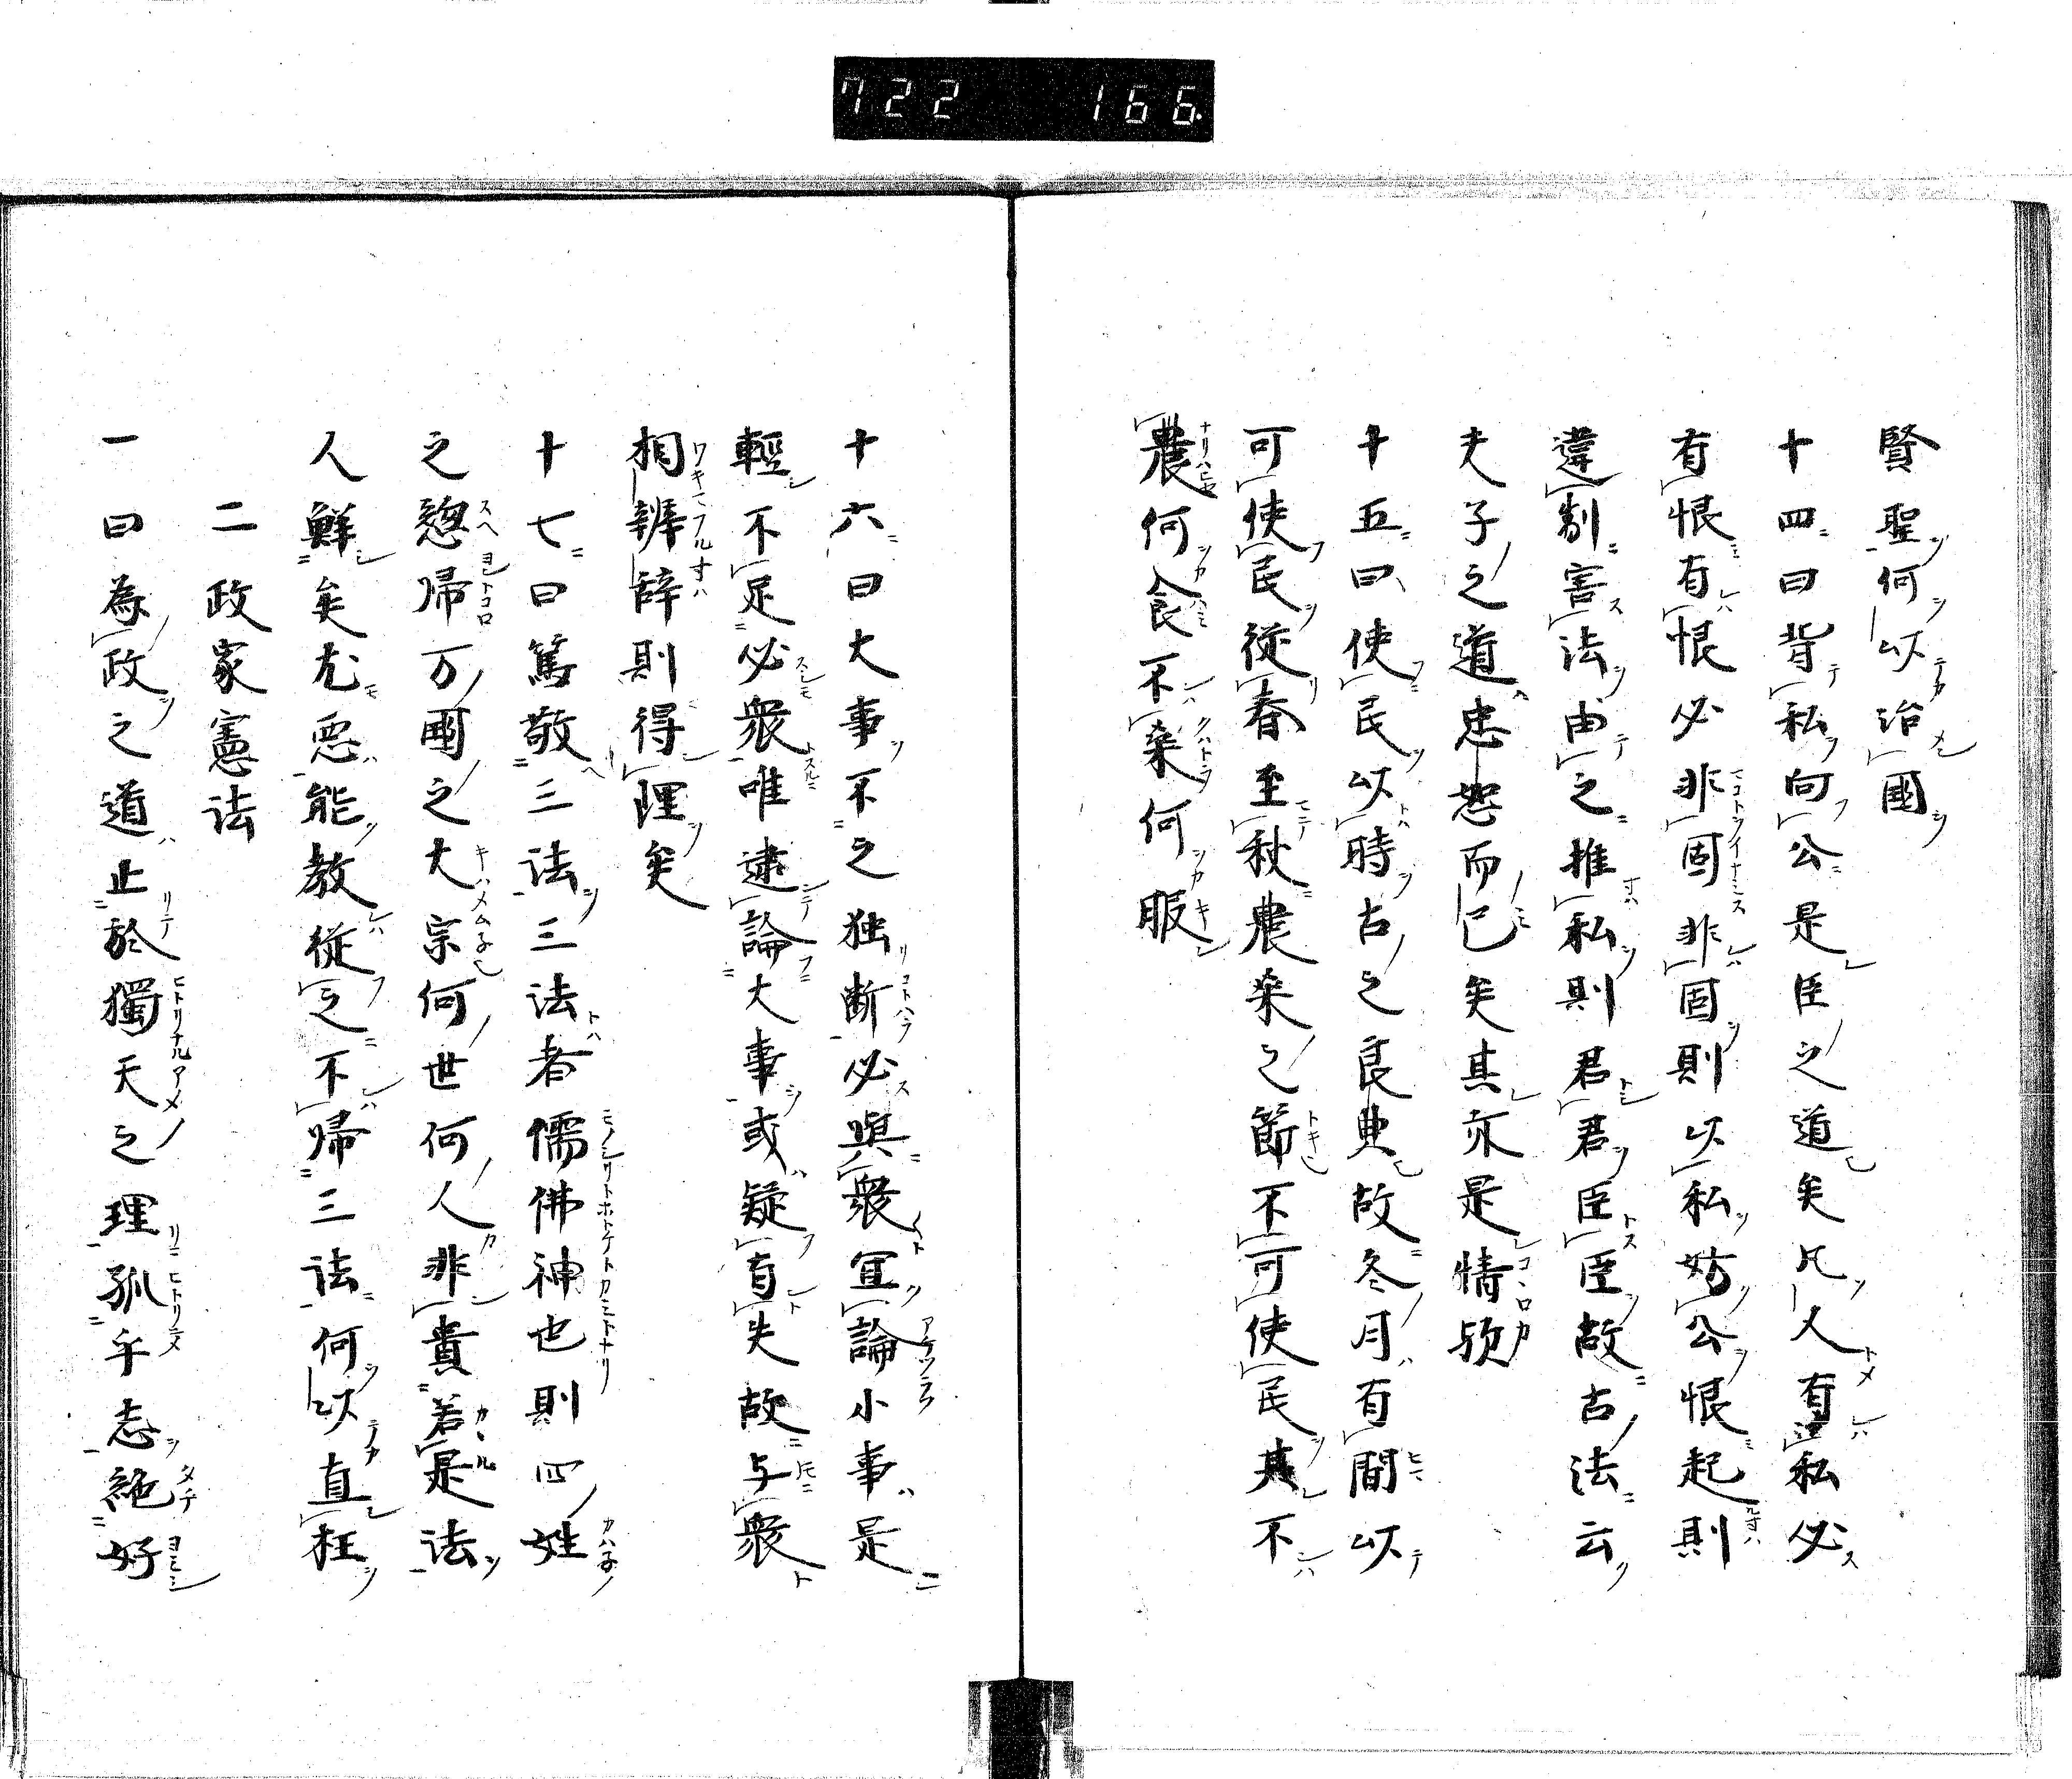 722 166
賢聖何以治國
十四曰背私向公是臣之道矣凡人有私必
有恨有恨必非固非固則以私妨公恨起則
違制害法由之推私則君君臣臣故古法云
夫子之道忠恕而已矣其亦是情歟
十五曰使民以時古之良典故冬月有間以
可使民從春至秋農桒之節不可使民其不
農何食不桒何服
十六曰大事不之独断必與衆宜論小事是
輕不足必衆唯逮論大事或疑有失故与衆
相辨辞則得理矣
十七曰篤敬三法三法者儒佛神也則四姓
之惣帰万國之大宗何世何人非貴若是法
人鮮矣尤悪能教從之不帰三法何以直枉
二政家憲法
一曰為政之道止於獨天之理孤乎志絶好